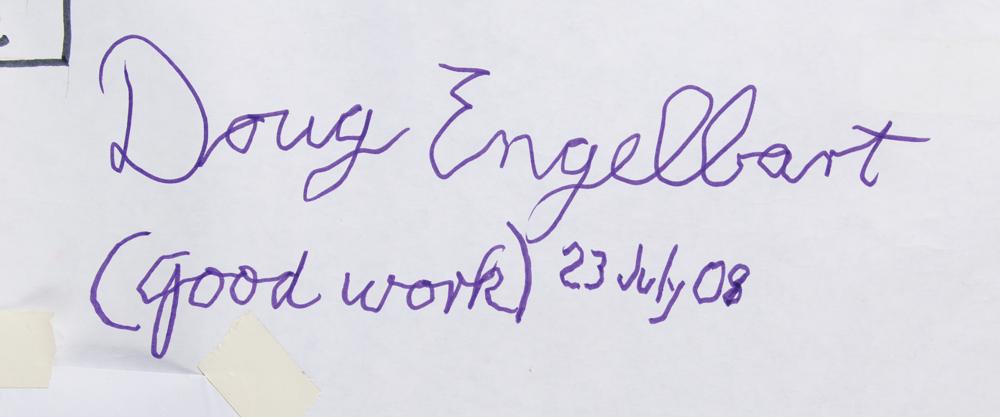 Doug Engelbart
(good work) 23 July 08